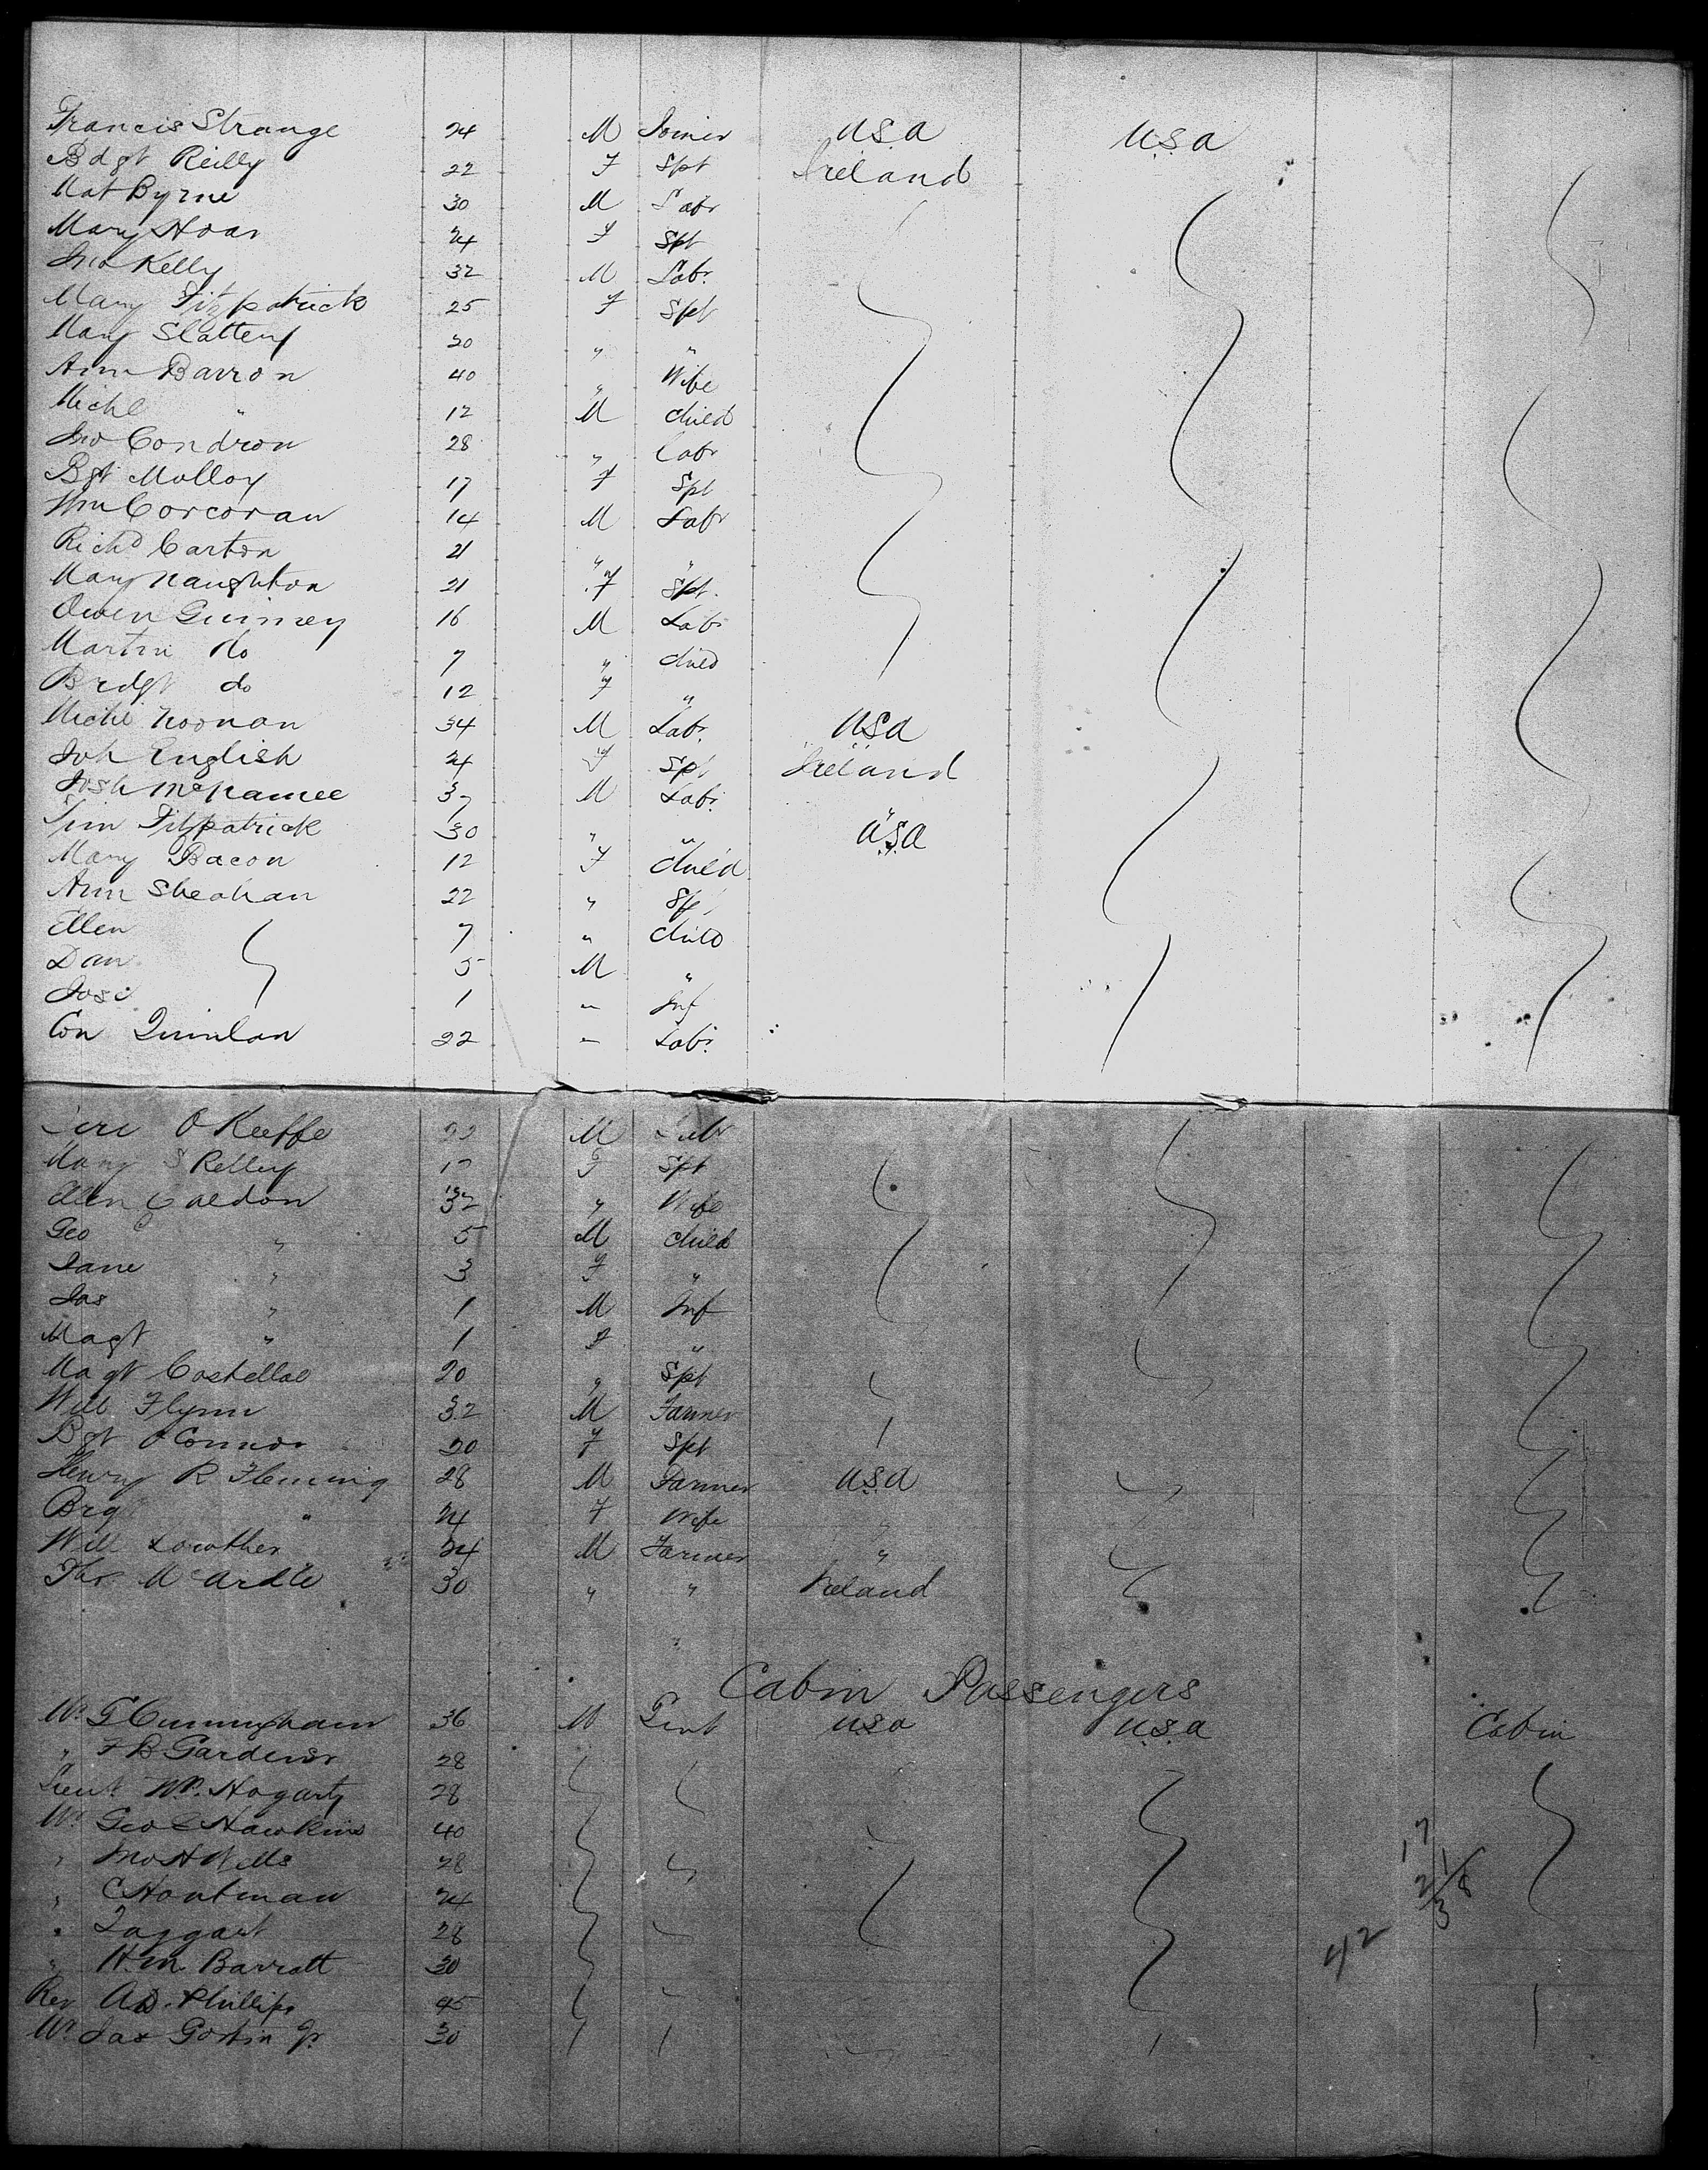 Francis Strange 24 M Joiner U.S.A U.S.A
Bdgt Reilly 22 F Spt Ireland
Mat Byrne 30 M Labr
Mary Hoar 24 F Spt
Jno Kelly 32 M Labr
Mary Fitzpatrick 25 F Spt
Mary Slattery 20 " "
Ann Barron 40 " Wife
Michl " 12 M Child
Jno Condron 28 " Labr
Bgt Molloy 17 F Spt
Wm Corcoran 14 M Labr
Richd Carton 21 " "
Mary Naughton 21 F Spt
Owen Guinney 16 M Labr
Martin do 7 " Child
Bridgt do 12 F "
Michl Noonan 34 M Labr USA
Joh English 24 F Spt Ireland
Josh McNamee 37 M Labr "
Tim Fitzpatrick 30 " " U.S.A
Mary Bacon 12 F Child
Ann Sheahan 22 " Spt
Ellen 7 " Child
Dan 5 M "
Josi 1 " Inf
Con Quinlan 22 " Labr
O Keeffe 22 M Labr
Mary S Kelley F Spt
Ellen Caldon 32 " Wife
Geo " 5 M Child
Jane " 3 F "
Jas " 1 M Inf
Magt " 1 F "
Magt Costelloe 20 " Spt
Will Flynn 32 M Farmer
Bgt O Connor 20 F Spt
Henry R Fleming 28 M Farmer U.S.A
Brgt " 24 F Wife "
Will Lowther 24 M Farmer "
Thos McArdle 30 " " Ireland
Cabin Passengers
Mr G Cunningham 36 M Gent U.S.A U.S.A Cabin
" F B Gardener 28
Lieut Wm Hogarty 28
Mr Geo E Hawkins 40
" Jno H Wells 28
" C Hontman 24
" Taggart 28
" H. M. Barratt 30
Rev A D. Phillips 45
Mr Jas Gostin Jr 30
17
21/8
3
42